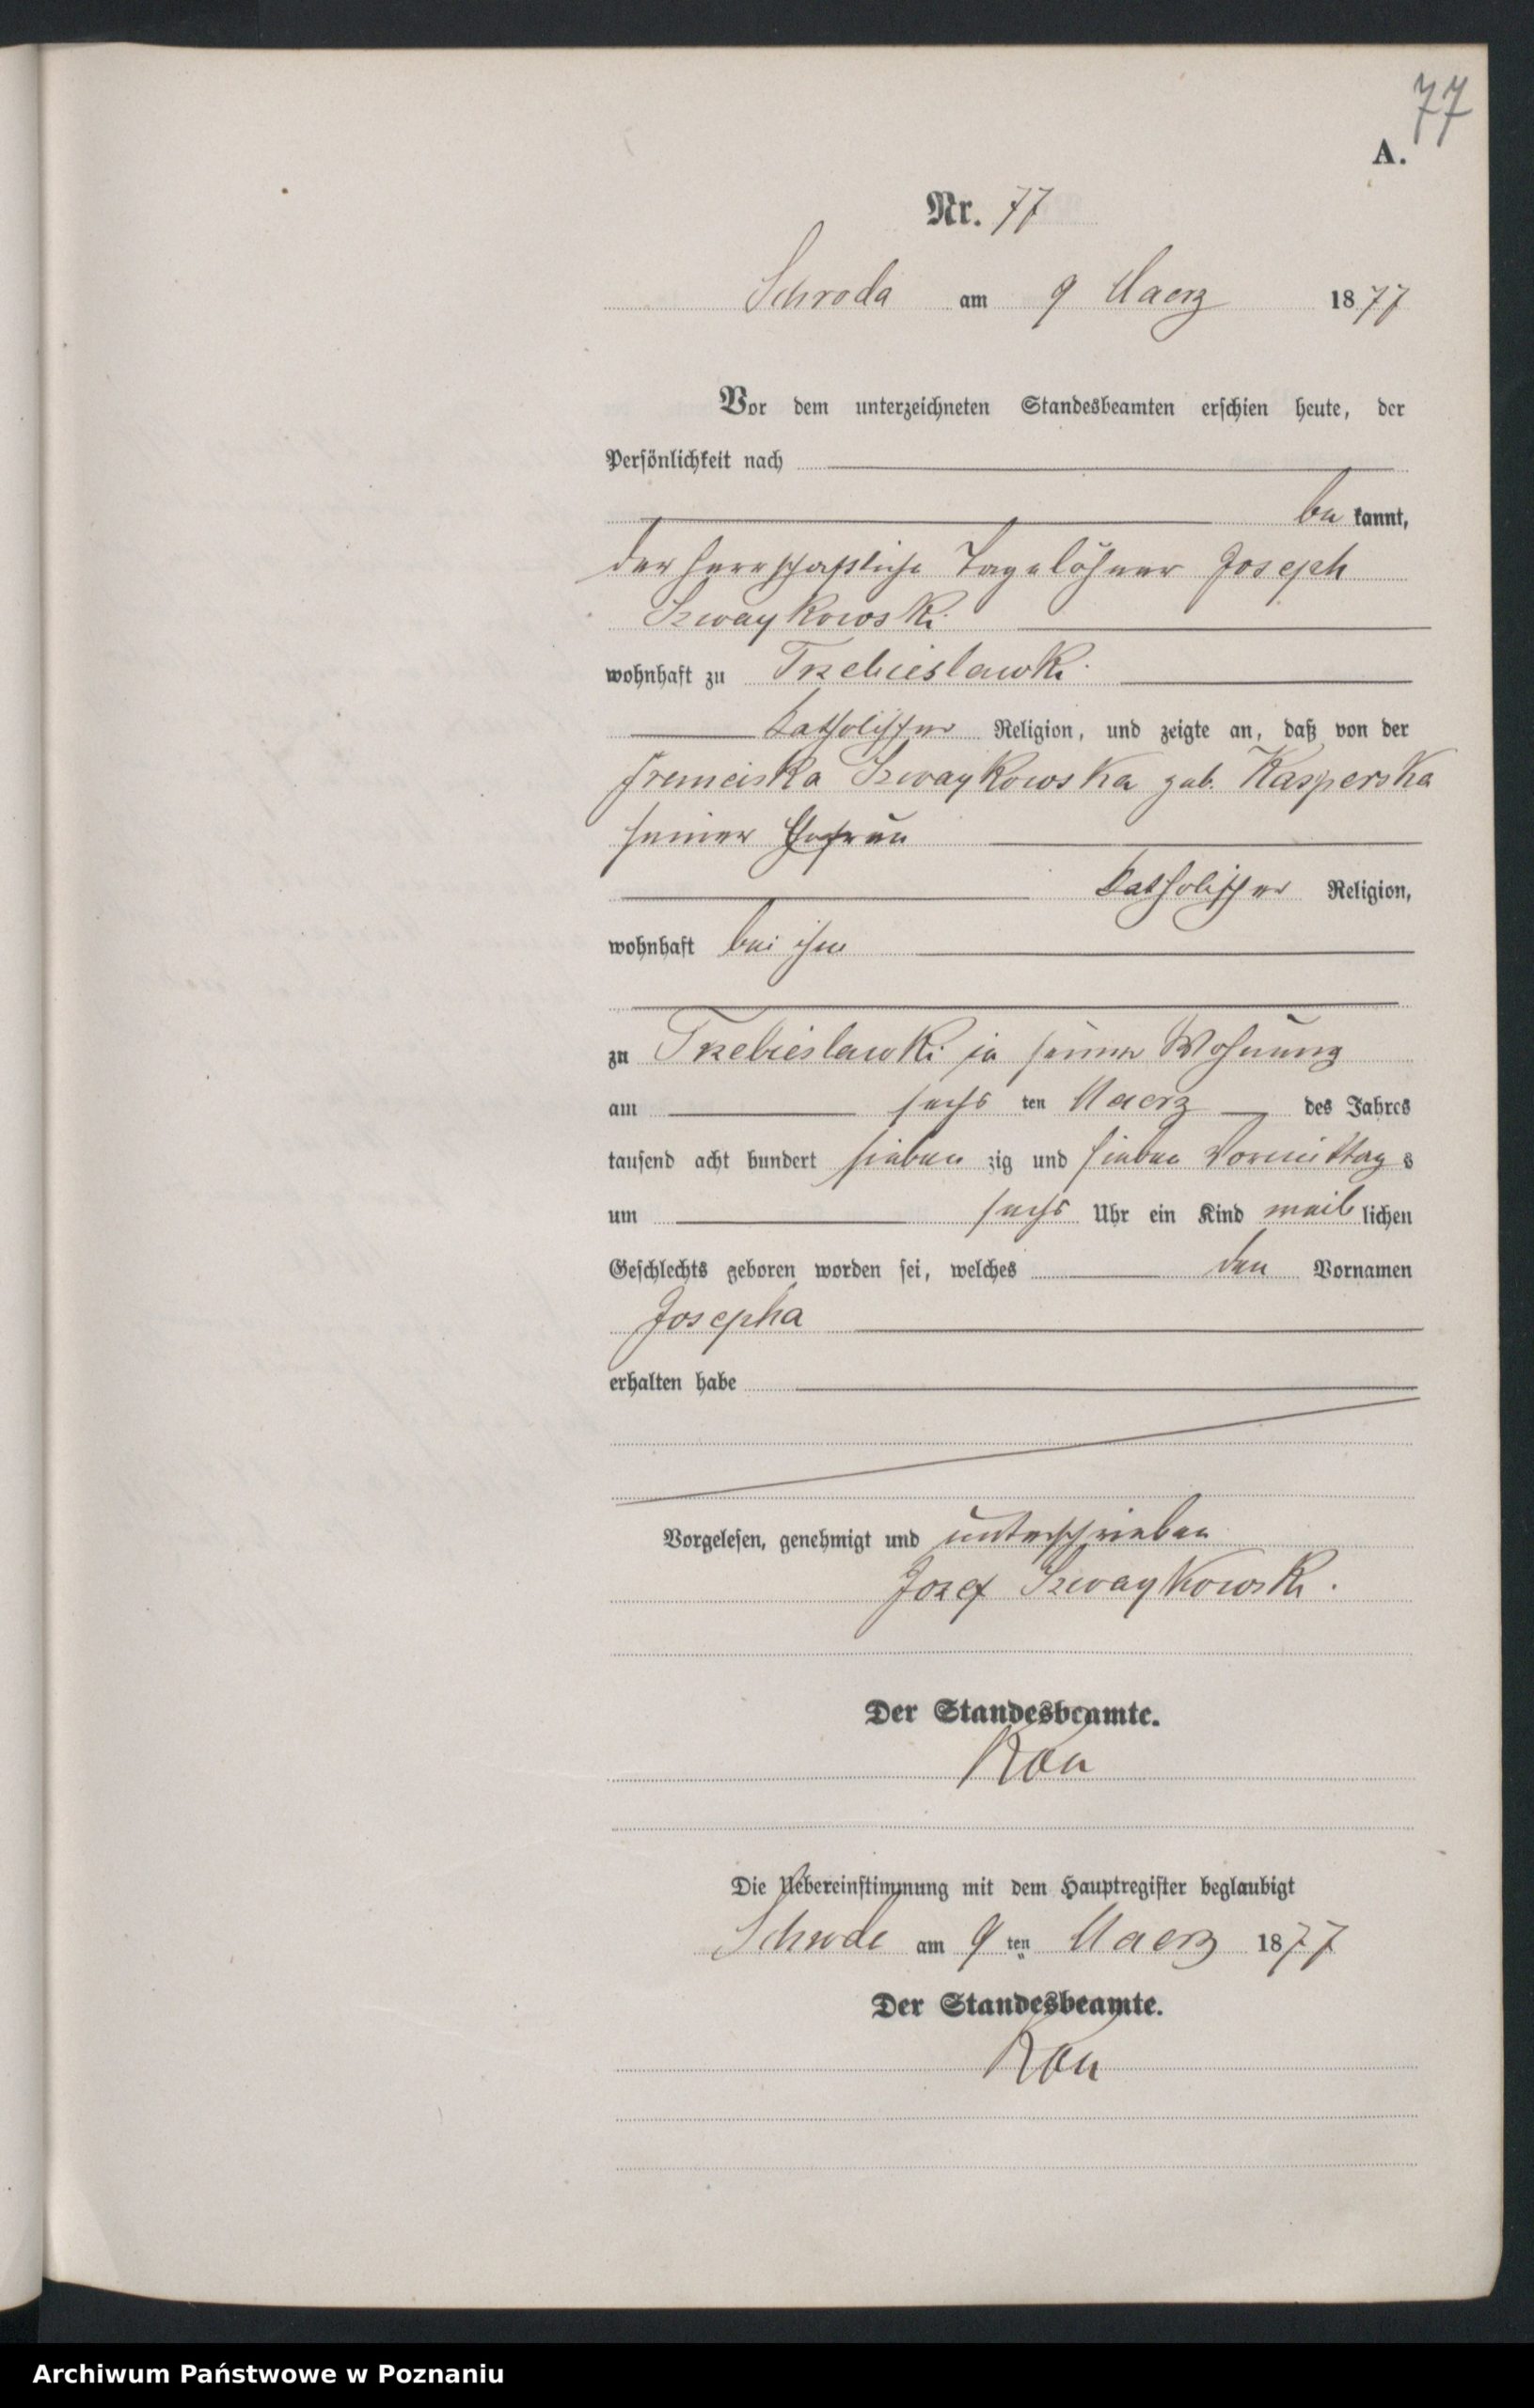 77
A.
Nr. 77
Schroda am 9 Maerz 1877
Vor dem unterzeichneten Standesbeamten erschien heute, der
Persönlichkeit nach
be kannt,
der herrschaftliche Tagelöhner Joseph
Szwaykowski
wohnhaft zu Trzebieslawki
katholischer Religion, und zeigte an, daß von der
Franciska Szwaykowska geb. Kasperska
seiner Ehefrau
katholischer Religion,
wohnhaft bei ihm
zu Trzebieslawki in seiner Wohnung
am sechs ten Maerz des Jahres
tausend acht hundert sieben zig und sieben Vormittag s
um sechs Uhr ein Kind weib lichen
Geschlechts geboren worden sei, welches den Vornamen
Josepha
erhalten habe
Vorgelesen, genehmigt und unterschrieben
Jozef Szwaykowski.
Der Standesbeamte.
Die Uebereinstimmung mit dem Hauptregister beglaubigt
Schroda am 9 ten Maerz 1877
Der Standesbeamte.
Archiwum Państwowe w Poznaniu